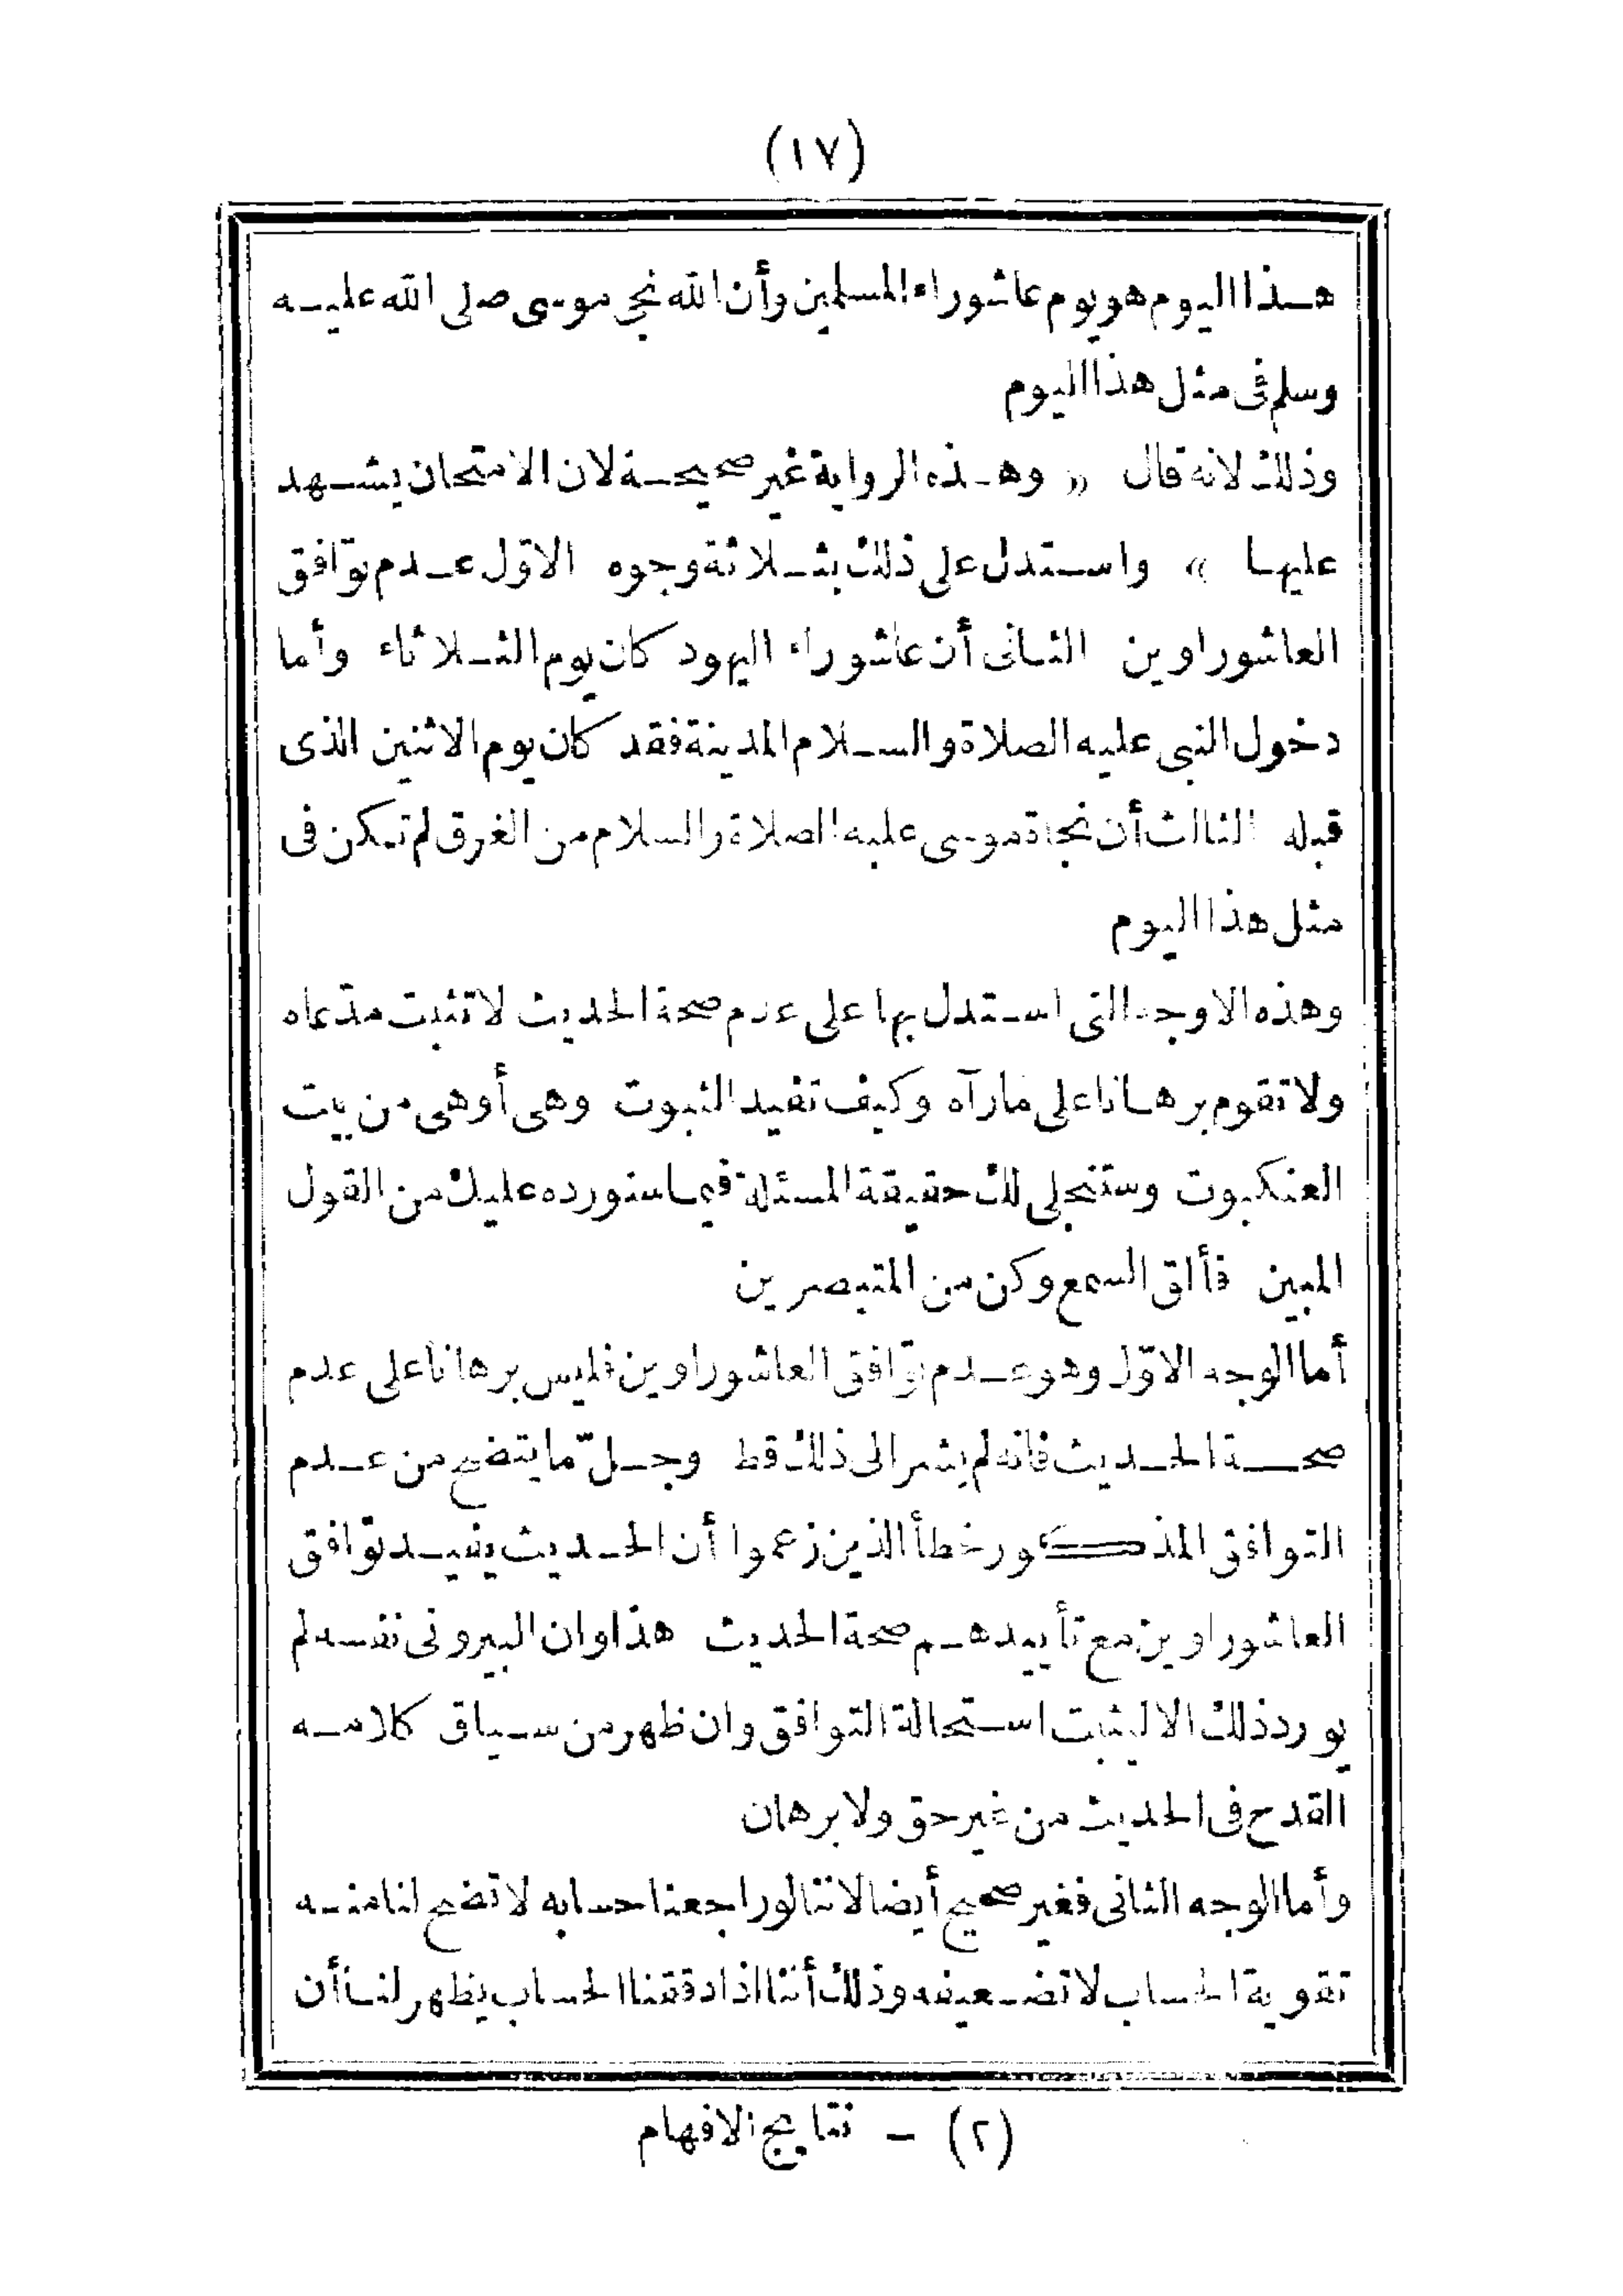 (١٧)
هذا اليوم هو يوم عاشوراء المسلمين وأن الله نجى موسى صلى الله عليه
وسلم فى مثل هذا اليوم
وذلك لانه قال « وهذه الرواية غير صحيحة لان الامتحان يشهد
عليها » واستدل على ذلك بثلاثة وجوه الاوّل عدم توافق
العاشوراوين الثانى أن عاشوراء اليهود كان يوم الثلاثاء وأما
دخول النبى عليه الصلاة والسلام المدينة فقد كان يوم الاثنين الذى
قبله الثالث أن نجاة موسى عليه الصلاة والسلام من الغرق لم تكن فى
مثل هذا اليوم
وهذه الاوجه التى استدل بها على عدم صحة الحديث لا تثبت مدّعاه
ولا تقوم برهانا على مارآه وكيف تفيد الثبوت وهى أوهى من بيت
العنكبوت وستنجلى لك حقيقة المسئلة فيما سنورده عليك من القول
المبين فألق السمع وكن من المتبصرين
أما الوجه الاوّل وهو عدم توافق العاشوراوين فليس برهانا على عدم
صحة الحديث فانه لم يشر الى ذلك قط وجلّ ما يتضح من عدم
التوافق المذكور خطأ الذين زعموا أن الحديث يفيد توافق
العاشوراوين مع تأييدهم صحة الحديث هذا وان البيرونى نفسه لم
يورد ذلك الا ليثبت استحالة التوافق وان ظهر من سياق كلامه
القدح فى الحديث من غير حق ولا برهان
وأما الوجه الثانى فغير صحيح أيضا لاننا لو راجعنا حسابه لاتضح لنا منه
تقوية الحساب لا تضعيفه وذلك أننا اذا دققنا الحساب يظهر لنا أن
(٢) — نتايج الافهام